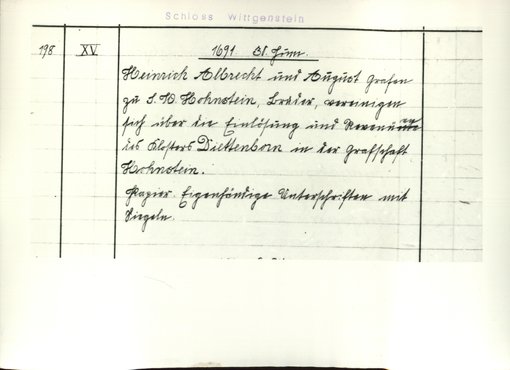 Schloss Wittgenstein
198 XV. 1691. 21. Juni.
Heinrich Albrecht und August Grafen
zu S. W. Hohnstein, Brüder, vereinigen
sich über die Einlösung und Revenuen
des Klosters Dietenborn in der Grafschaft
Hohnstein.
Papier. Eigenhändige Unterschriften mit
Siegeln.